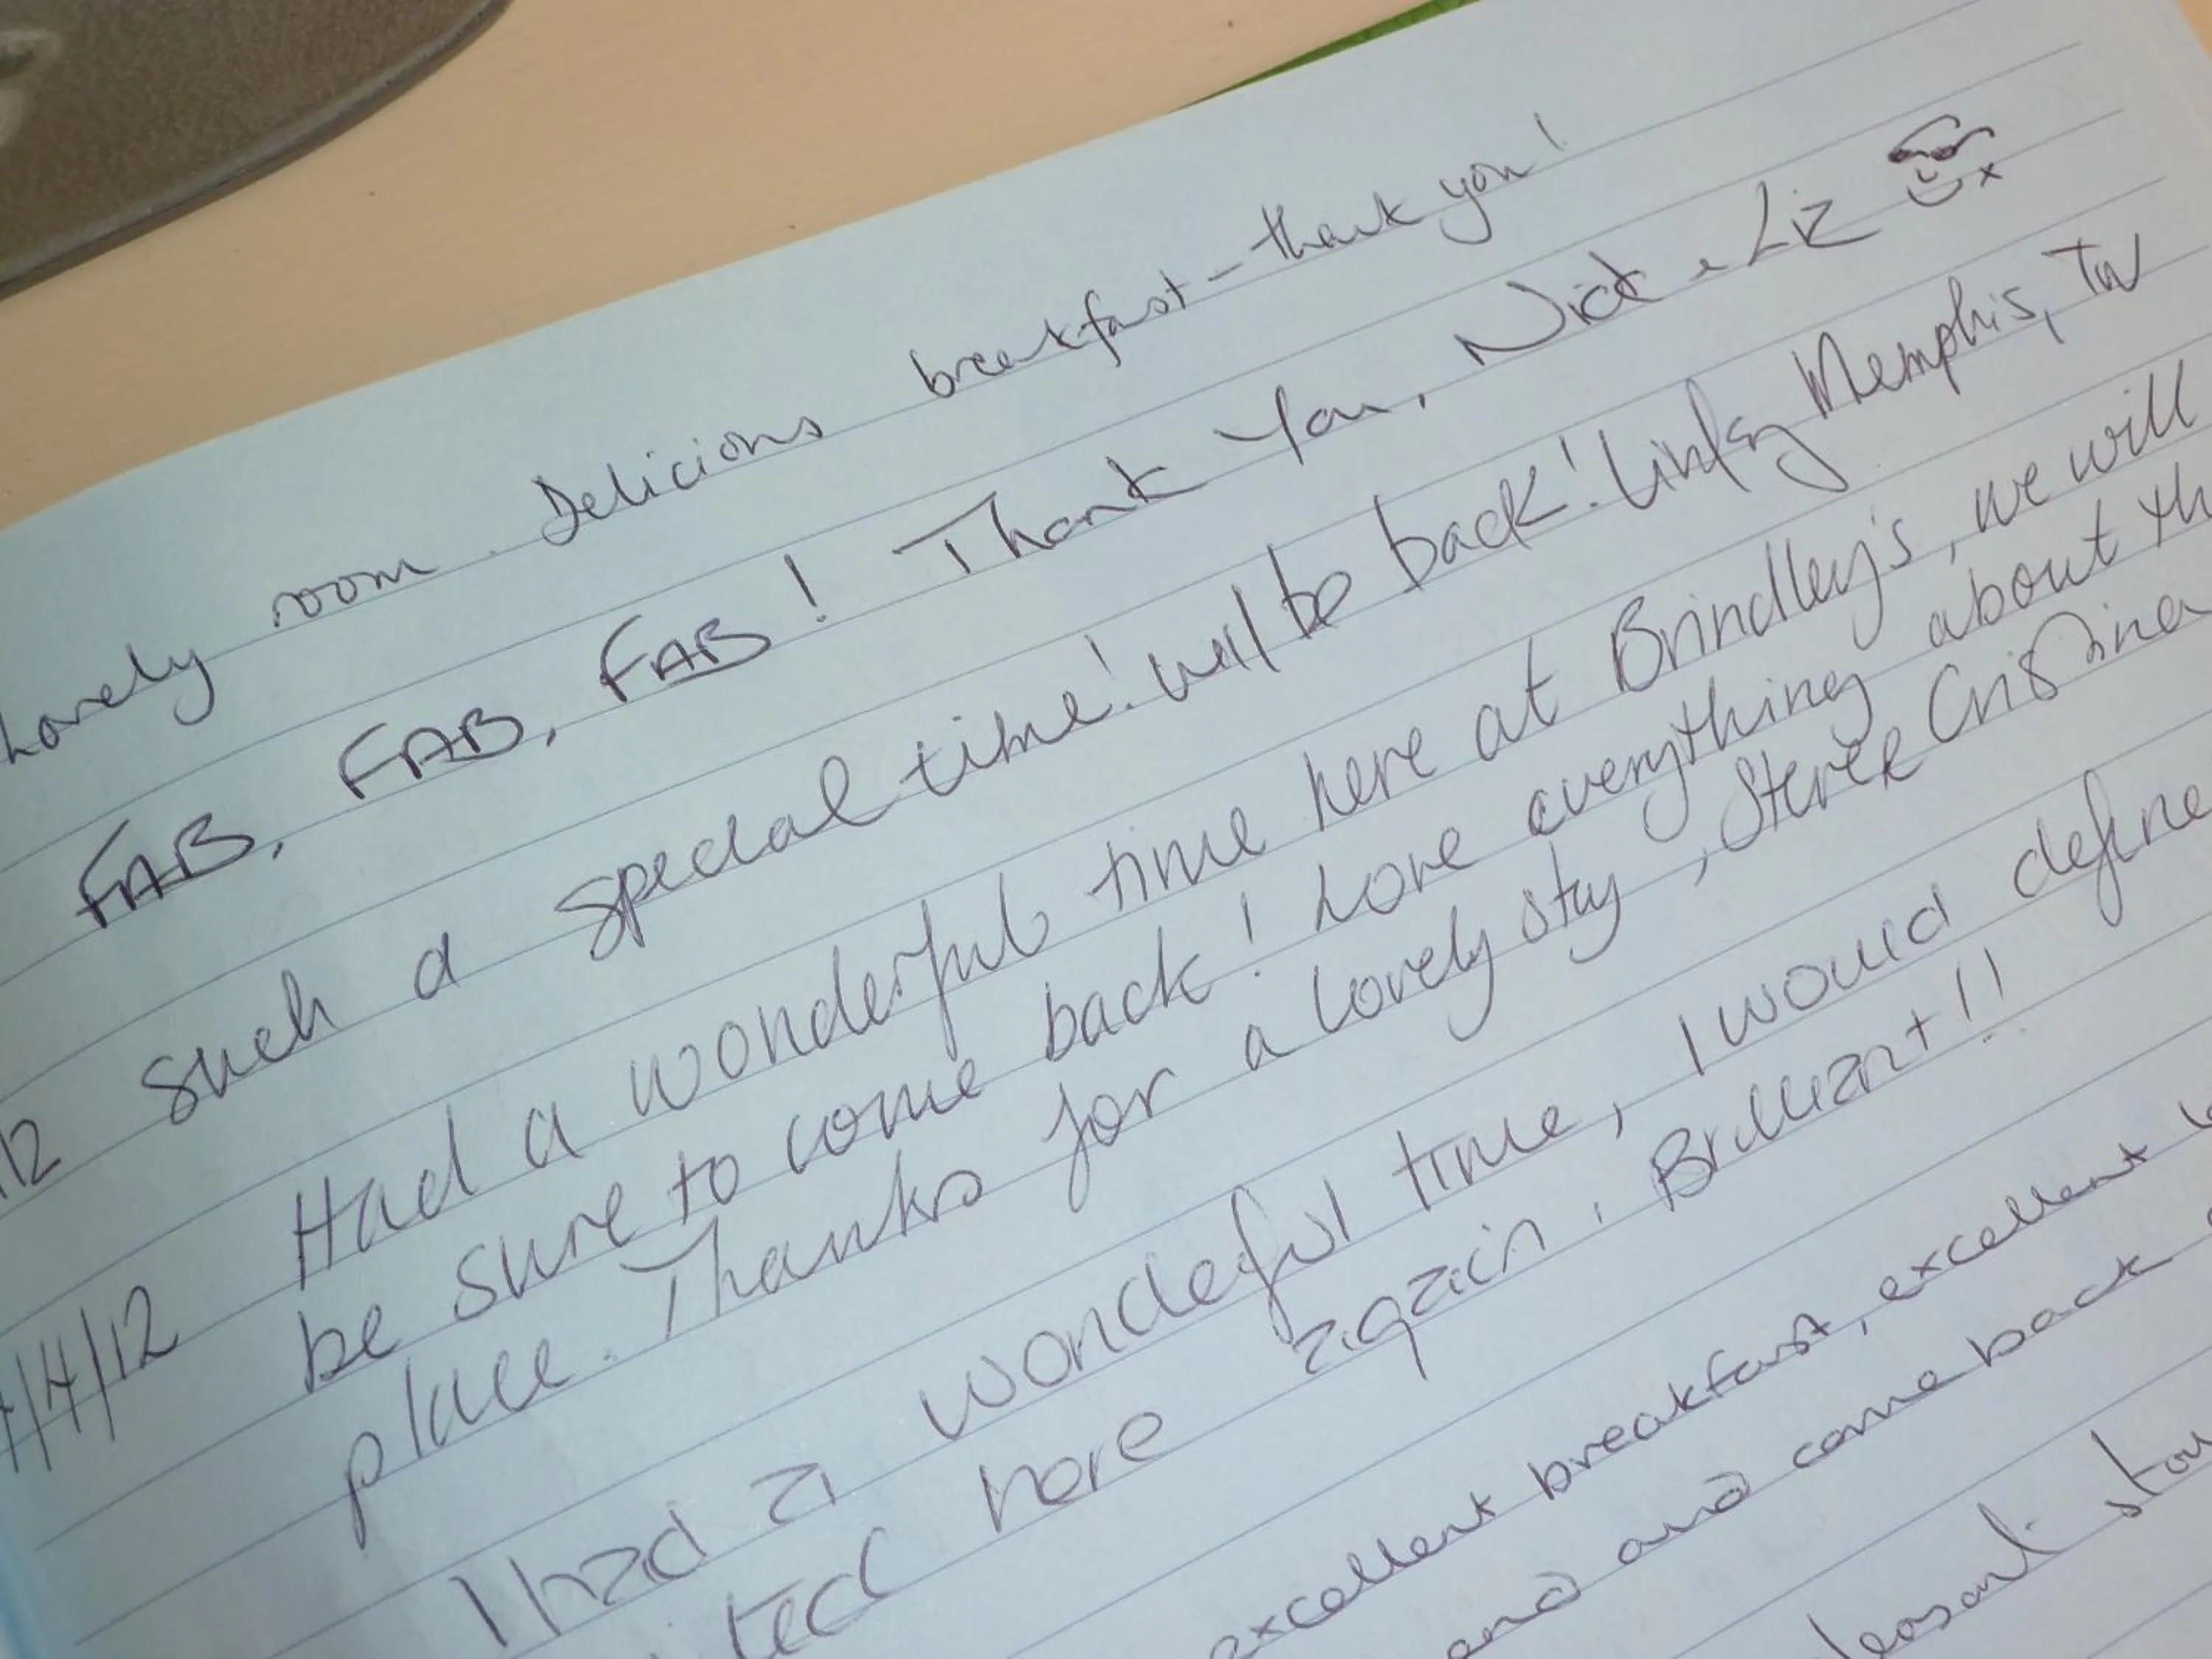 Lovely room. Delicious breakfast - thank you!
FAB, FAB, FAB! Thank You, Nick & Liz x
/12 Such a special time! will be back! Memphis, TN
/4/12 Had a wonderful time here at Brindley's, we will
be sure to come back! Love everything about th
place. Thanks for a lovely stay, Steve & Cristina
I had a wondeful time, I would define
here again. Brilliant!!
excellent breakfast, excellent
and and come back